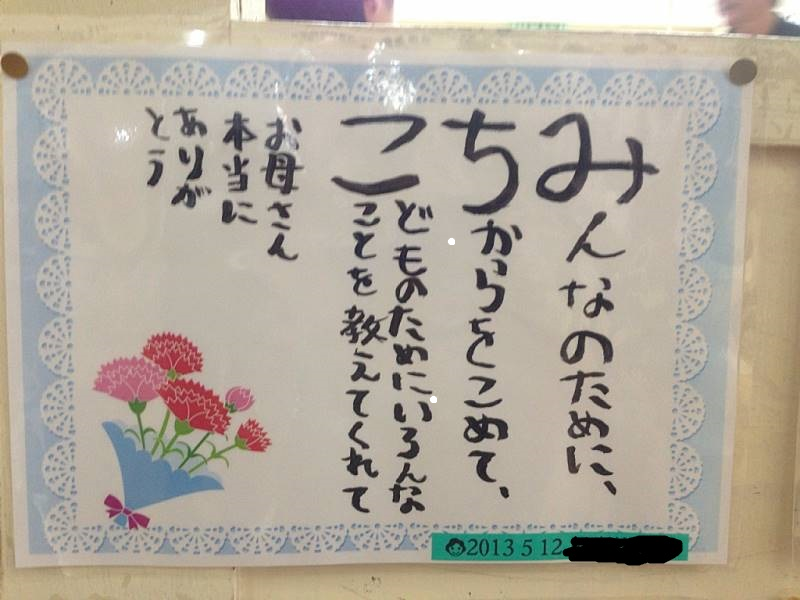 みんなのために、
ちからをこめて、
こどものためにいろんな
ことを教えてくれて
お母さん
本当に
ありが
とう
2013 5 12